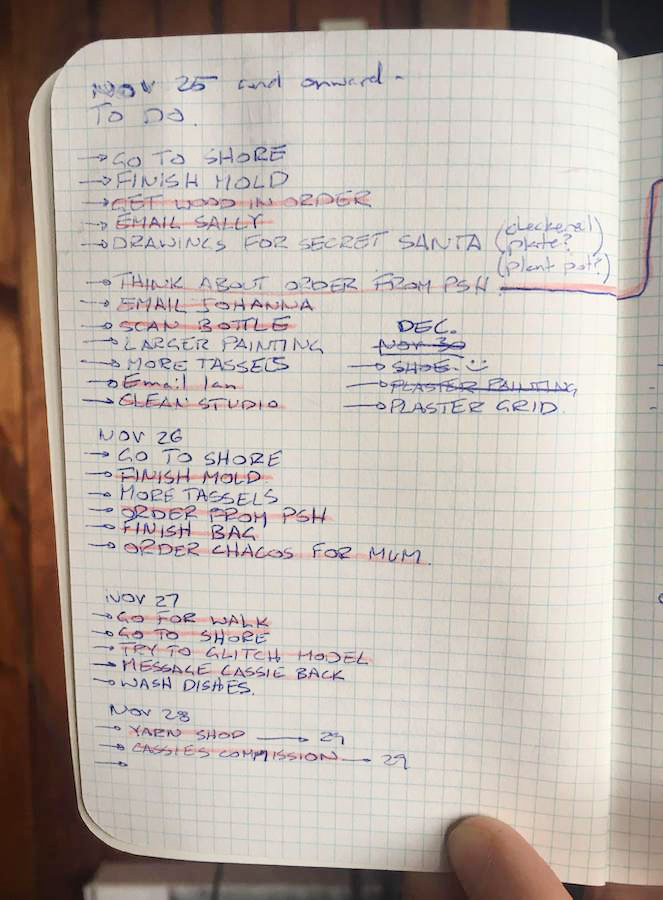 NOV 25 and onward -
TO DO.
→ GO TO SHORE
→ FINISH MOLD
→ GET WOOD IN ORDER
→ EMAIL SALLY
→ DRAWINGS FOR SECRET SANTA (checkered plate?) (plant pot?)
→ THINK ABOUT ORDER FROM PSH.
→ EMAIL JOHANNA
→ SCAN BOTTLE
→ LARGER PAINTING
→ MORE TASSELS
→ Email Ian
→ CLEAN STUDIO
DEC.
NOV 30
→ SHOE. :)
→ PLASTER PAINTING
→ PLASTER GRID.
NOV 26
→ GO TO SHORE
→ FINISH MOLD.
→ MORE TASSELS
→ ORDER FROM PSH
→ FINISH BAG
→ ORDER CHACOS FOR MUM.
NOV 27
→ GO FOR WALK
→ GO TO SHORE
→ TRY TO GLITCH MODEL
→ MESSAGE CASSIE BACK
→ WASH DISHES.
NOV 28
→ YARN SHOP → 29
→ CASSIES COMMISSION → 29
→